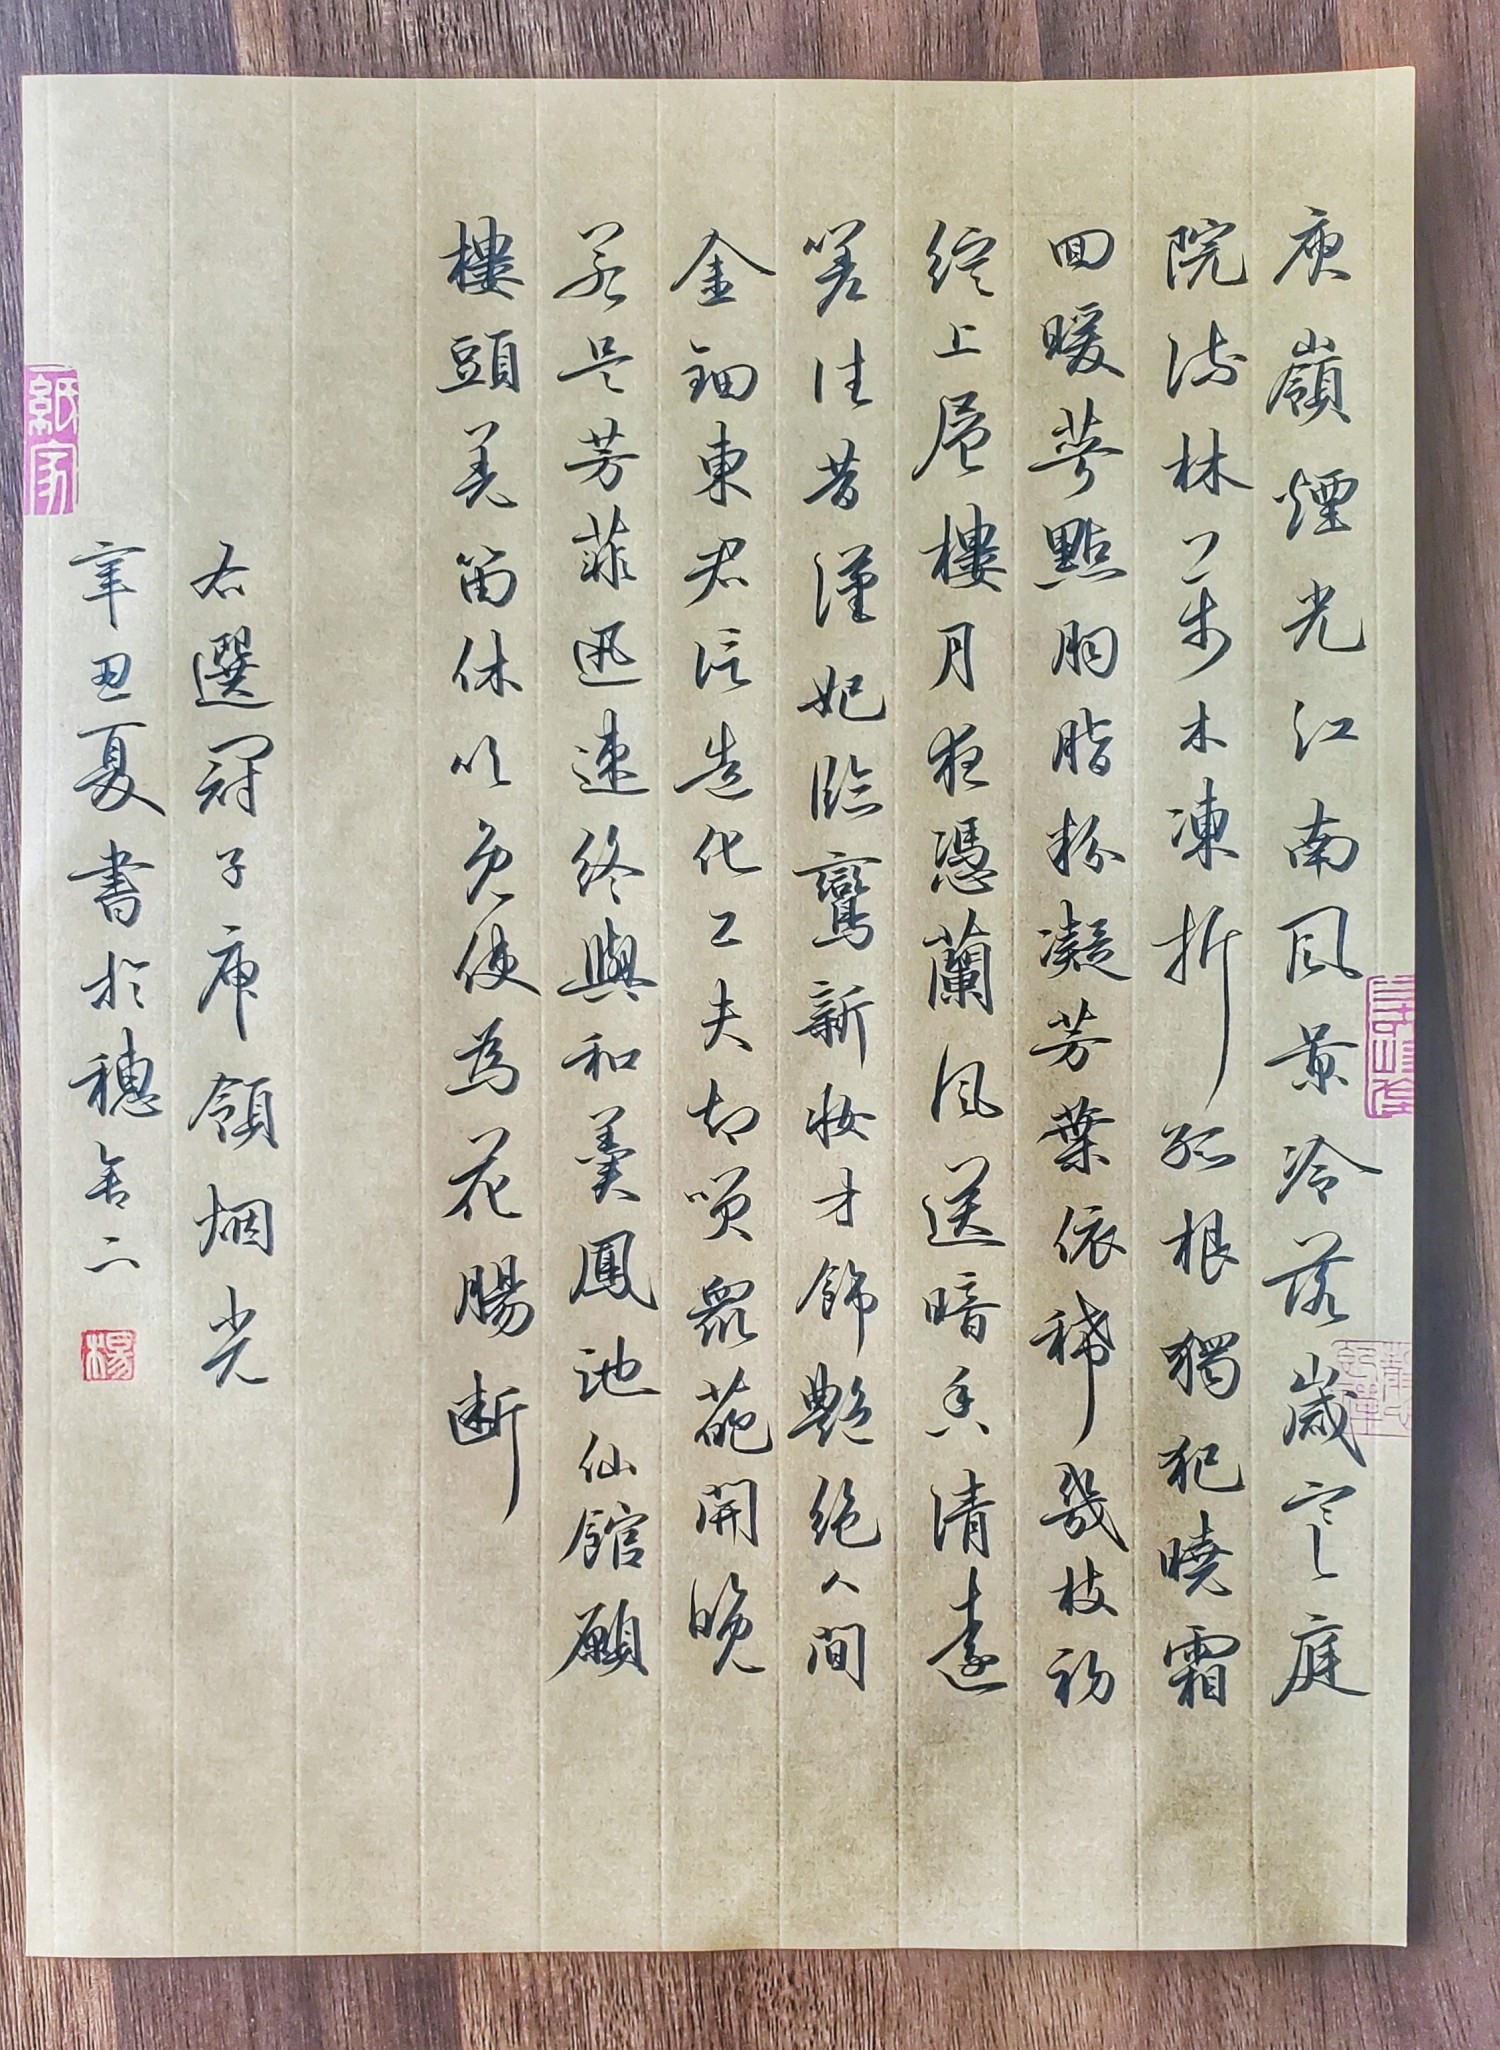 庾嶺煙光江南風景冷落歲寒庭
院清林一步木凍折孤根獨犯曉霜
回暖萼點胭脂粉凝芳葉依稀幾枝初
綻上層樓月夜憑蘭風送暗香清遠
嗟往昔漢妃臨鸞新妝才飾艷絕人間
金鈿東君信造化工夫却嘆眾葩開晚
若是芳菲迅速終與和羹鳳池仙館願
樓頭羌笛休吹免使為花腸斷
右選冠子庾領烟光
辛丑夏書於穗舍二
楊
紙家